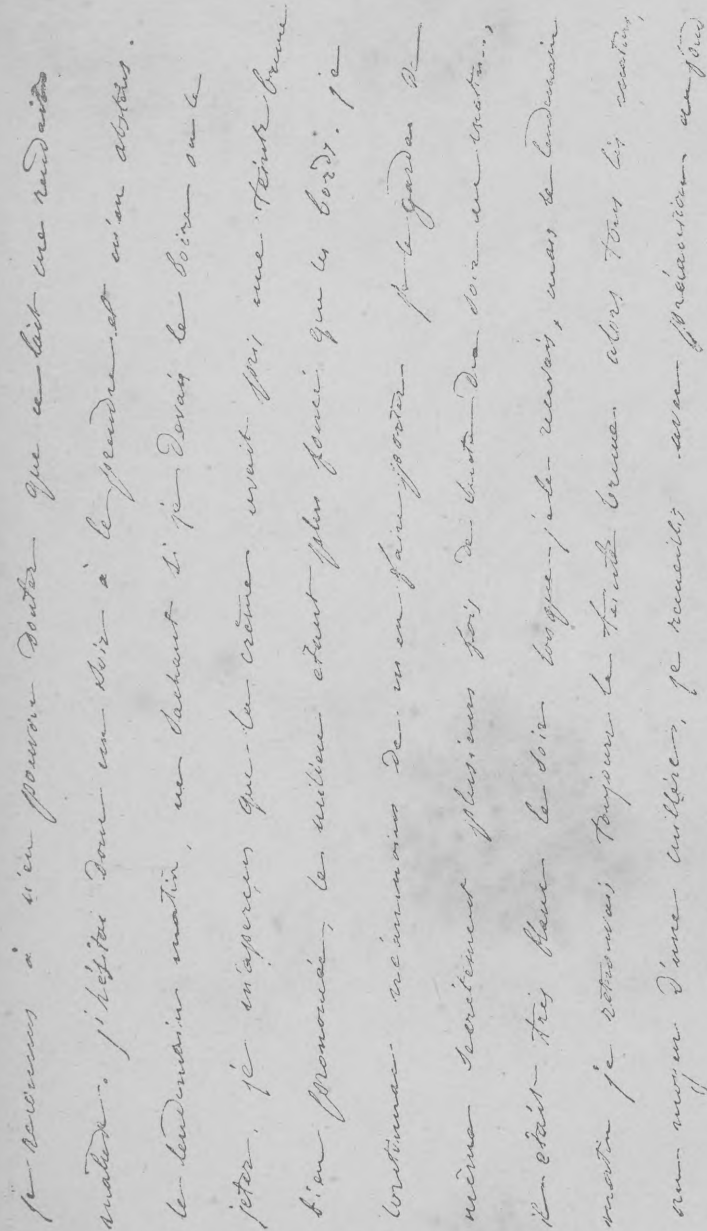 je reconnus à n'en pouvoir douter que ce lait me rendait
malade. j'hésitai donc un soir à le prendre et m'en abstins.
le lendemain matin, ne sachant si je devais le boire ou le
jeter, je m'aperçus que la crème avait pris une teinte brune
bien prononcée, le milieu étant plus foncé que les bords. je
continuai néanmoins de m'en faire apporter je le gardai de
même secrètement plusieurs fois de suite du soir au matin,
il était très blanc le soir lorsque je le recevais, mais le lendemain
matin je retrouvais toujours la teinte brune. alors tous les matins,
au moyen d'une cuillère, je recueillis avec précaution au fond